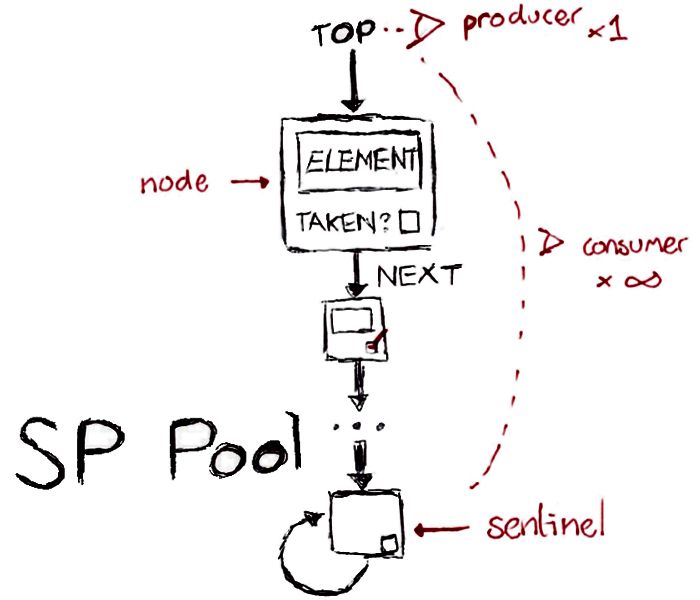 TOP
producer x1
ELEMENT
node
TAKEN?
NEXT
consumer
x ∞
...
SP Pool
sentinel